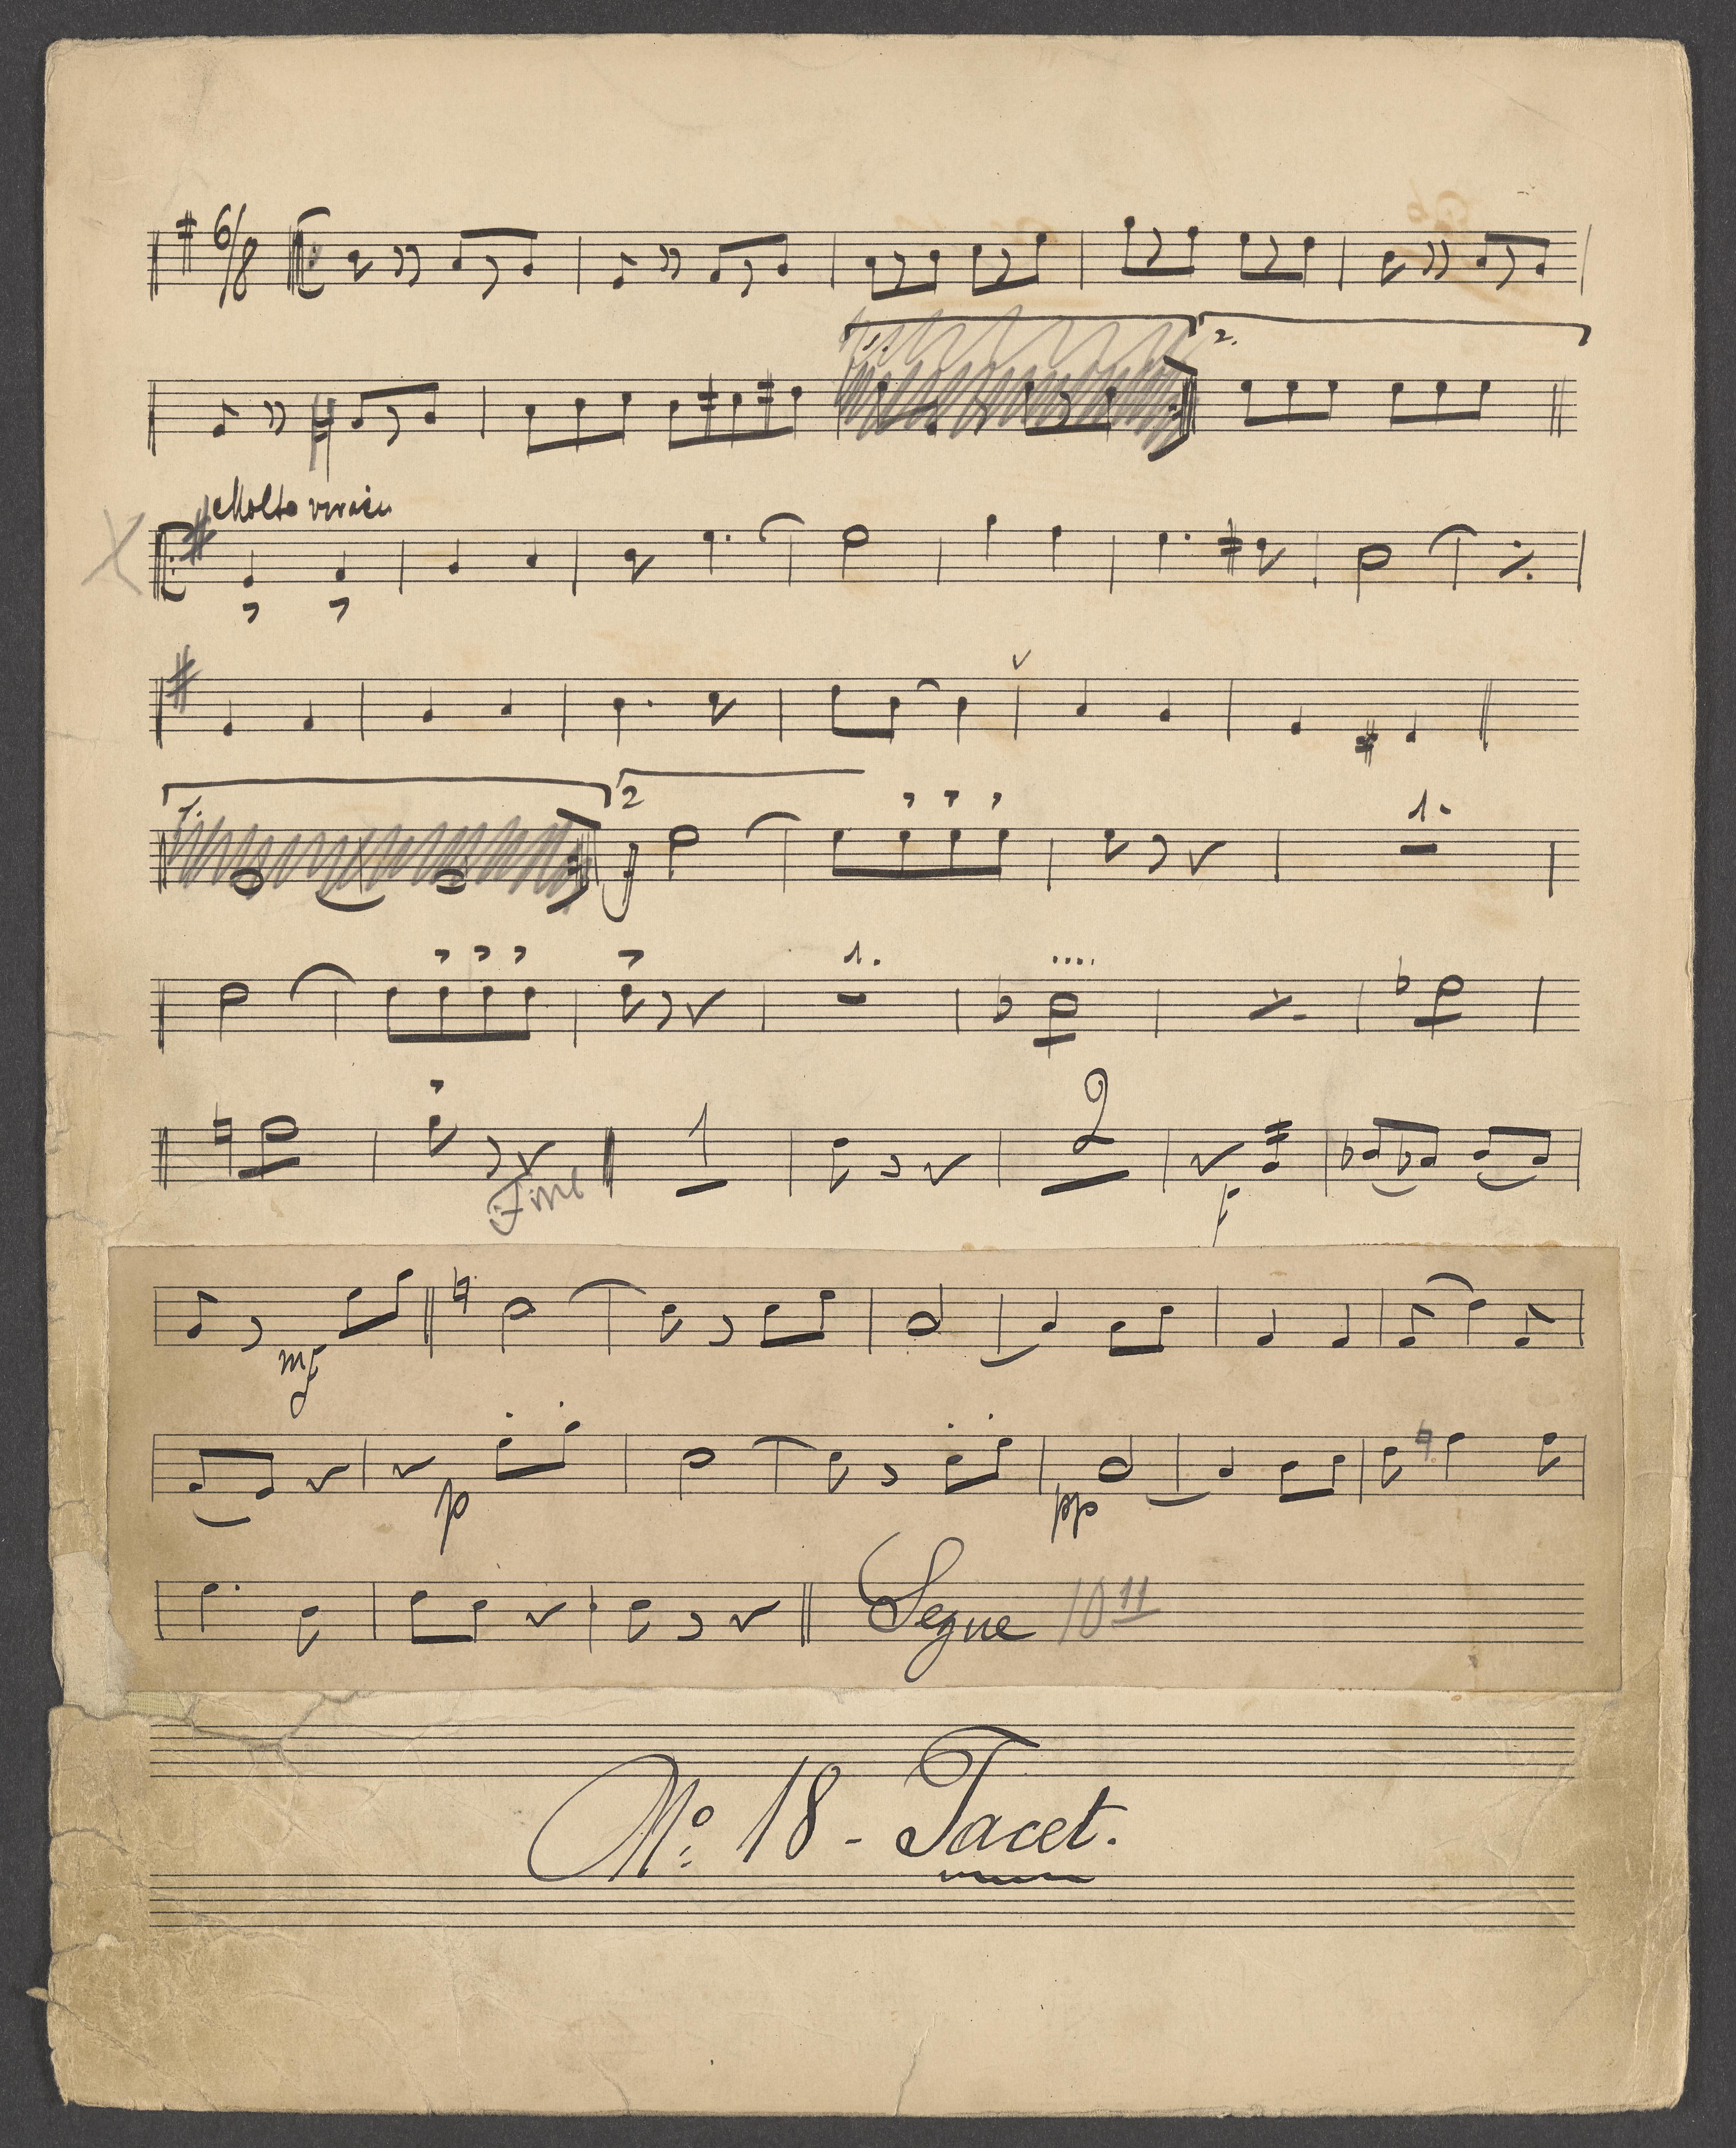 6/8
1. 2.
Molto vivace
1. 2
1.
1.
1 2
Fine
f
mf
p pp
Segue 10 11
No. 18 - Tacet.